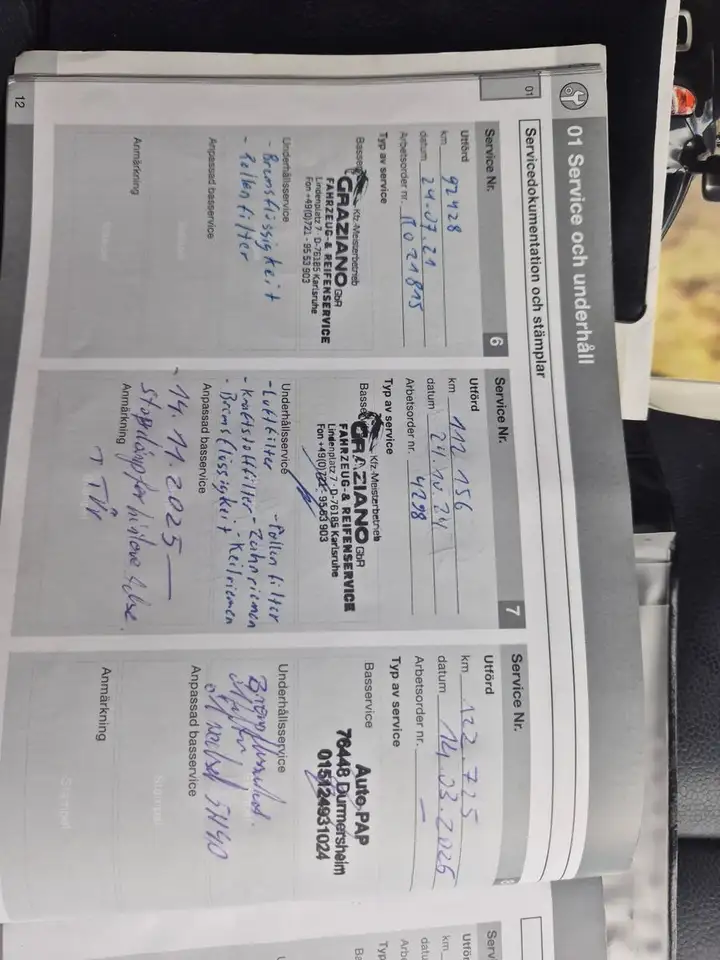 01 Service och underhåll
01
Servicedokumentation och stämplar
Service Nr. 6
Utförd
km 92428
datum 24.07.21
Arbetsorder nr. R021815
Typ av service
Basservice
Kfz.-Meisterbetrieb
GRAZIANO GbR
FAHRZEUG- & REIFENSERVICE
Lindenplatz 7 · D-76185 Karlsruhe
Fon +49(0)721 - 95 53 903
Underhållsservice
- Bremsflüssigkeit
- Pollenfilter
Anpassad basservice
Anmärkning
Service Nr. 7
Utförd
km 112 156
datum 24.10.24
Arbetsorder nr. 4298
Typ av service
Basservice
Kfz.-Meisterbetrieb
GRAZIANO GbR
FAHRZEUG- & REIFENSERVICE
Lindenplatz 7 · D-76185 Karlsruhe
Fon +49(0)721 - 95 53 903
Underhållsservice
- Luftfilter - Pollenfilter
- Kraftstoffilter - Zahnriemen
- Bremsflüssigkeit - Keilriemen
Anpassad basservice
- 14.11.2025 —
Stoßdämpfer hintere Achse
Anmärkning
→ TÜV
Service Nr. 8
Utförd
km 122.725
datum 14.03.2026
Arbetsorder nr. —
Typ av service
Basservice
Auto-PAP
76448 Durmersheim
015124931024
Underhållsservice
Anpassad basservice
Anmärkning
12
Utförd
km
Typ